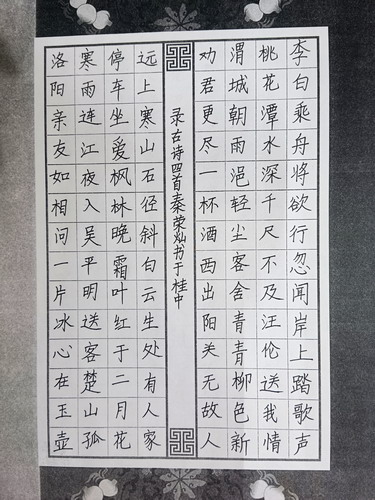 李白乘舟将欲行忽闻岸上踏歌声
桃花潭水深千尺不及汪伦送我情
渭城朝雨浥轻尘客舍青青柳色新
劝君更尽一杯酒西出阳关无故人
录古诗四首秦荣灿书于桂中
远上寒山石径斜白云生处有人家
停车坐爱枫林晚霜叶红于二月花
寒雨连江夜入吴平明送客楚山孤
洛阳亲友如相问一片冰心在玉壶